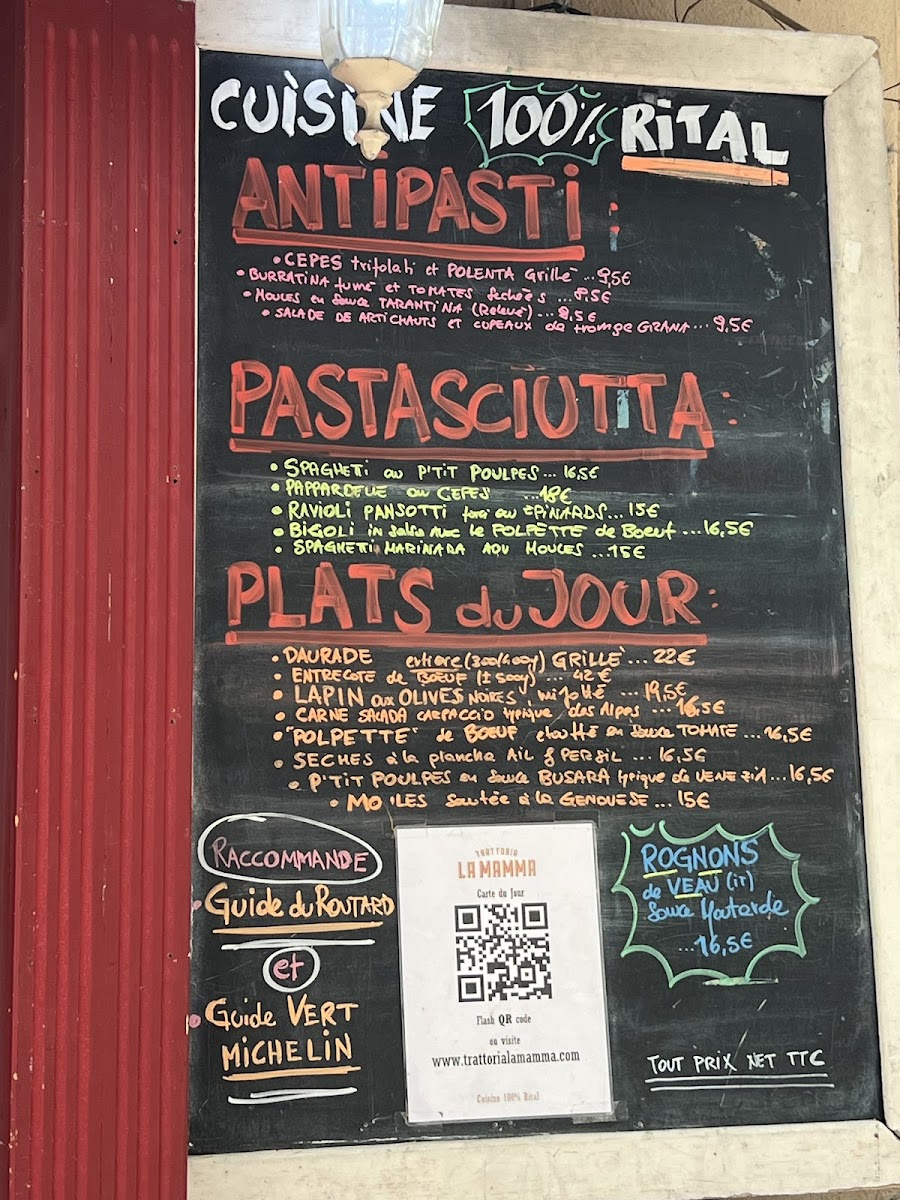 CUÌSINE 100% RITAL
ANTIPASTI :
• CEPES trifolati et POLENTA Grillé ... 9,5€
• BURRATINA fumé et TOMATES Sechées ... 9,5€
• MOULES en sauce TARANTINA (Relevé) ... 9,5€
• SALADE DE ARTICHAUTS ET COPEAUX de fromage GRANA ... 9,5€
PASTASCIUTTA :
• SPAGHETI au P'TIT POULPES ... 16,5€
• PAPPARDELLE au CEPES ... 18€
• RAVIOLI PANSOTTI farci au EPINARDS ... 15€
• BIGOLI in salsa AVEC le POLPETTE de Boeuf ... 16,5€
• SPAGHETTI MARINARA AQU MOULES ... 15€
PLATS du JOUR :
• DAURADE entiere (300/400g) GRILLÉ ... 22€
• ENTRECOTE de BOEUF (± 500g) ... 42€
• LAPIN aux OLIVES NOIRES mijoté ... 19,5€
• CARNE SALADA CARPACCIO typique des Alpes ... 16,5€
• "POLPETTE" de BOEUF en sauce TOMATE ... 16,5€
• SECHES à la plancha AIL & PERSIL ... 16,5€
• P'TIT POULPES en sauce BUSARA typique da VENEZIA ... 16,5€
• MO LES Sautée à la GENOUESE ... 15€
RACCOMMANDE
• Guide du ROUTARD
et
• Guide VERT
MICHELIN
TRATTORIA
LA MAMMA
Carte du Jour
Flash QR code
ou visite
www.trattorialamamma.com
Cuisine 100% Rital
ROGNONS
de VEAU (IT)
Sauce Moutarde
... 16,5€
TOUT PRIX NET TTC